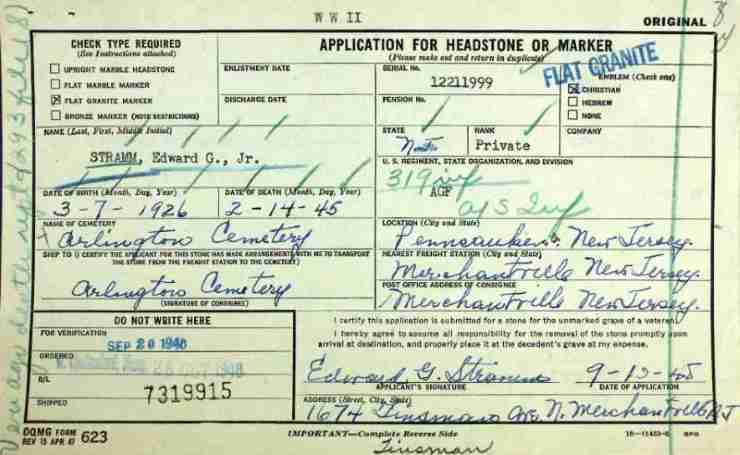 WW II
ORIGINAL
8
CHECK TYPE REQUIRED
(See Instructions attached)
UPRIGHT MARBLE HEADSTONE
FLAT MARBLE MARKER
FLAT GRANITE MARKER
BRONZE MARKER (NOTE RESTRICTIONS)
APPLICATION FOR HEADSTONE OR MARKER
(Please make out and return in duplicate)
FLAT GRANITE
ENLISTMENT DATE
SERIAL No.
12211999
EMBLEM (Check one)
CHRISTIAN
HEBREW
NONE
DISCHARGE DATE
PENSION No.
NAME (Last, First, Middle Initial)
STRAMM, Edward G., Jr.
STATE
RANK
Private
COMPANY
U. S. REGIMENT, STATE ORGANIZATION, AND DIVISION
319 inf
AGF
DATE OF BIRTH (Month, Day, Year)
3-7-1926
DATE OF DEATH (Month, Day, Year)
2-14-45
NAME OF CEMETERY
Arlington Cemetery
LOCATION (City and State)
Pennsauken, New Jersey.
SHIP TO (I CERTIFY THE APPLICANT FOR THIS STONE HAS MADE ARRANGEMENTS WITH ME TO TRANSPORT
THE STONE FROM THE FREIGHT STATION TO THE CEMETERY)
Arlington Cemetery
(SIGNATURE OF CONSIGNEE)
NEAREST FREIGHT STATION (City and State)
Merchantville New Jersey.
POST OFFICE ADDRESS OF CONSIGNEE
Merchantville New Jersey.
DO NOT WRITE HERE
FOR VERIFICATION
SEP 20 1948
ORDERED
B/L
7319915
SHIPPED
I certify this application is submitted for a stone for the unmarked grave of a veteran.
I hereby agree to assume all responsibility for the removal of the stone promptly upon
arrival at destination, and properly place it at the decedent's grave at my expense.
Edward G. Stramm
APPLICANT'S SIGNATURE
DATE OF APPLICATION
ADDRESS (Street, City, State)
1674 Tinsman Ave. N. Merchantville N.J
OQMG FORM
REV 15 APR 47 623
IMPORTANT—Complete Reverse Side
Tinsman